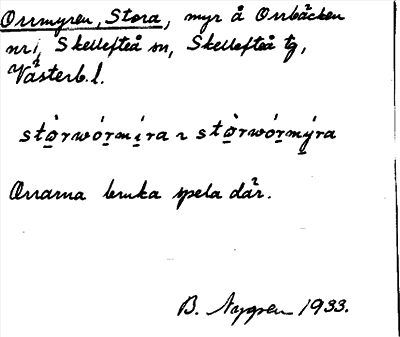 Orrmyren, Stora, myr å Orrbäcken
nr 1, Skellefteå sn, Skellefteå tg,
Västerb. l.
stòrwórmíra ~ stòrwórmýra
Orrarna bruka spela där.
B. Nygren 1933.